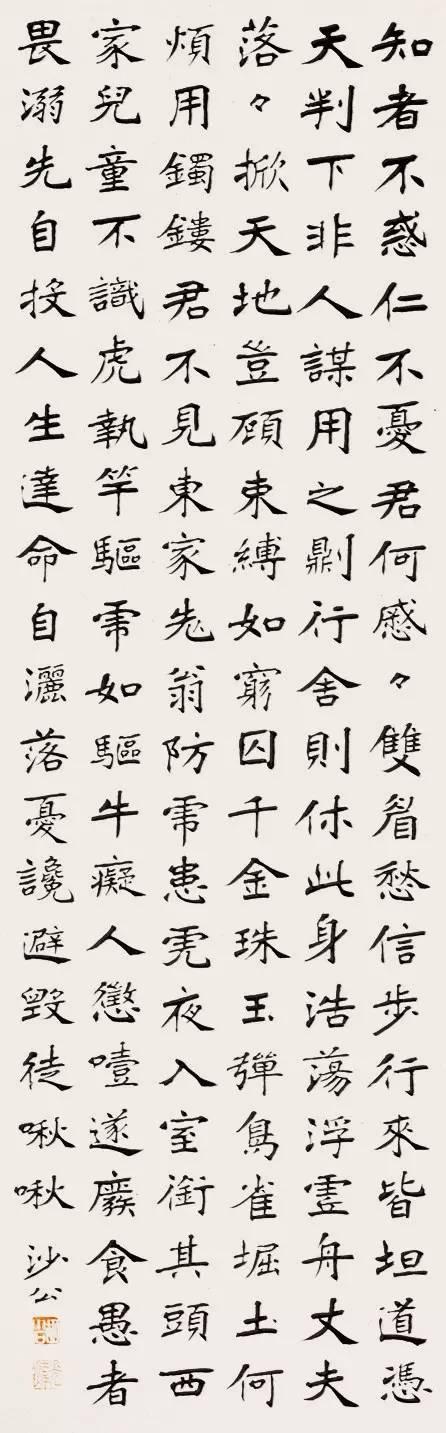 知者不惑仁不憂君何慼々雙眉愁信步行來皆坦道憑
天判下非人謀用之則行舍則休此身浩蕩浮虛舟丈夫
落々掀天地豈顧束縛如窮囚千金珠玉彈鳥雀堀土何
煩用鐲鏤君不見東家老翁防虎患虎夜入室銜其頭西
家兒童不識虎執竿驅虎如驅牛癡人懲噎遂廢食愚者
畏溺先自投人生達命自灑落憂讒避毀徒啾啾
沙公